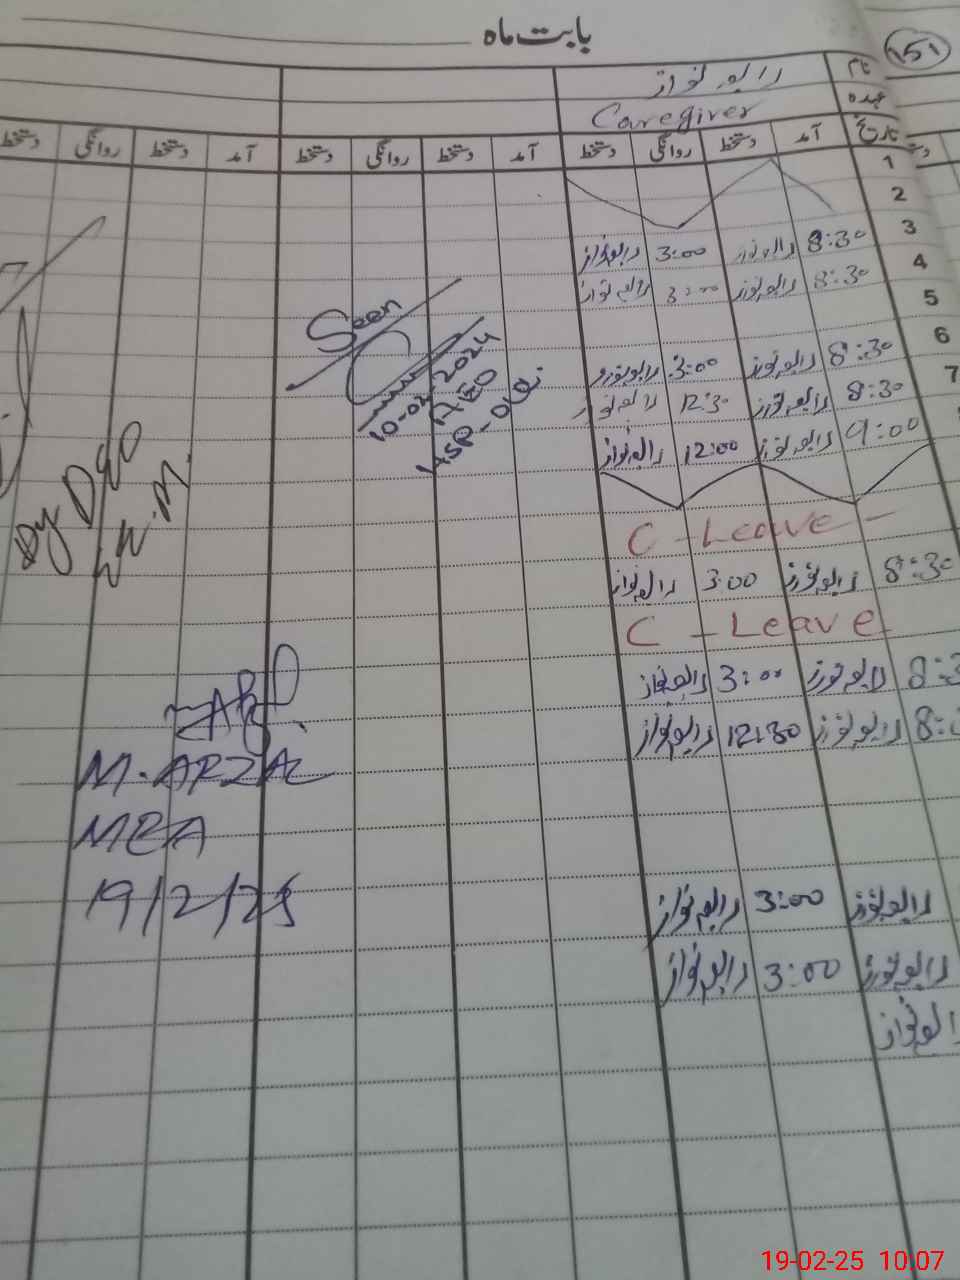 بابت ماہ
151
نام رابعہ نواز
عہدہ Caregiver
تاریخ آمد دستخط روانگی دستخط آمد دستخط روانگی دستخط آمد دستخط روانگی دستخط
1
2
3 8:30 رابعہ نواز 3:00 رابعہ نواز
4 8:30 رابعہ نواز 3:00 رابعہ نواز
5
6 8:30 رابعہ نواز 3:00 رابعہ نواز
7 8:30 رابعہ نواز 12:30 رابعہ نواز
9:00 رابعہ نواز 12:00 رابعہ نواز
C - Leave -
8:30 رابعہ نواز 3:00 رابعہ نواز
C - Leave
8:3 رابعہ نواز 3:00 رابعہ نواز
8: رابعہ نواز 12:30 رابعہ نواز
رابعہ نواز 3:00 رابعہ نواز
رابعہ نواز 3:00 رابعہ نواز
رابعہ نواز
Seen
10-02-2024
AEO
Dy DEO
M. ARZAL
MEA
19/2/25
19-02-25 10:07